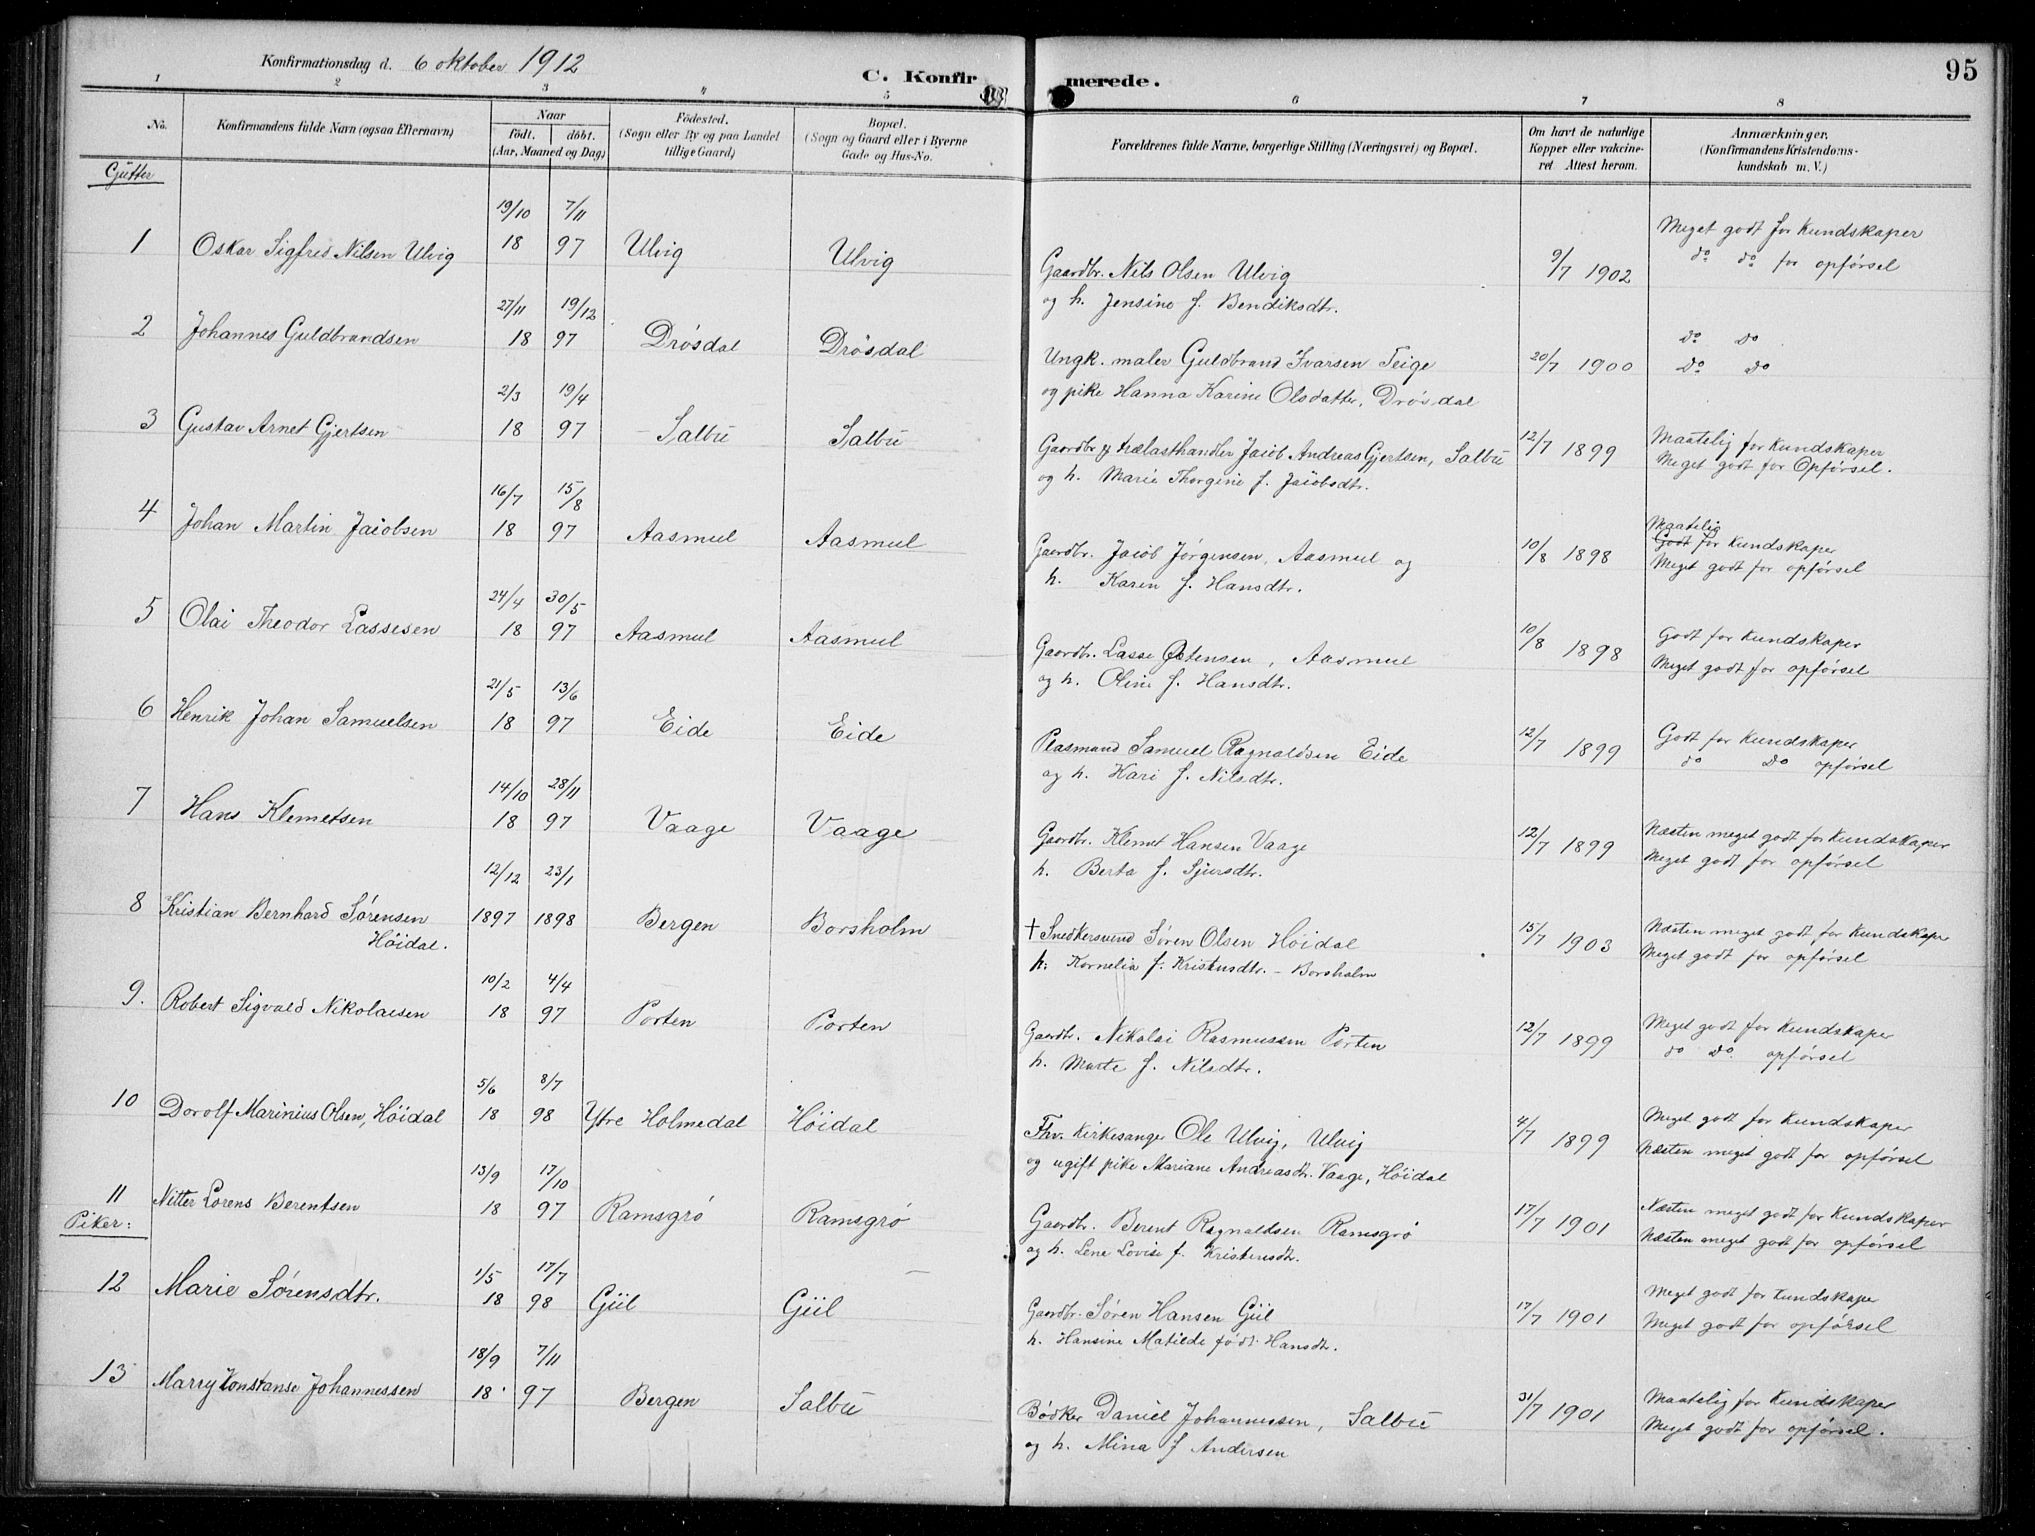 95
Konfirmationsdag d. 6 oktober 1912
C. Konfirmerede.
1 2 3 4 5 6 7 8
No.
Konfirmandens fulde Navn (ogsaa Efternavn)
Naar
födt. döbt.
(Aar, Maaned og Dag)
Födested.
(Sogn eller By og paa Landet
tillige Gaard)
Bopæl.
(Sogn og Gaard eller i Byerne
Gade og Hus-No.
Forældrenes fulde Navne, borgerlige Stilling (Næringsvei) og Bopæl.
Om havt de naturlige
Kopper eller vakcine-
ret Attest herom.
Anmærkninger.
(Konfirmandens Kristendoms-
kundskab m. V.)
Gutter
19/10 7/11
1 Oskar Sigfred Nilsen Ulvig 18 97 Ulvig Ulvig Gaardbr. Nils Olsen Ulvig 9/7 1902 Meget godt for Kundskaper
og h. Jensine f. Bendiksdtr. do do for opførsel
27/11 19/12
2 Johannes Guldbrandsen 18 97 Drösdal Drösdal Ungk. maler Guldbrand Ivarsen Teige 20/7 1900 do do
og pike Hanna Karine Olsdatter, Drösdal do do
2/3 19/4
3 Gustav Arnet Gjertsen 18 97 Salbu Salbu Gaardbr og trælasthandler Jacob Andreas Gjertsen, Salbu 12/7 1899 Maatelig for Kundskaper
og h. Marie Thorgine f. Jacobsdtr. Meget godt for Opførsel.
16/7 15/8
4 Johan Martin Jacobsen 18 97 Aasmul Aasmul Gaardbr. Jacob Jørgensen, Aasmul og 10/8 1898 Maatelig
Godt for Kundskaper
h. Karen f. Hansdtr. Meget godt for opførsel
24/4 30/5
5 Olai Theodor Lassesen 18 97 Aasmul Aasmul Gaardbr. Lasse Østensen, Aasmul 10/8 1898 Godt for Kundskaper
og h. Oline f. Hansdtr. Meget godt for opførsel
21/5 13/6
6 Henrik Johan Samuelsen 18 97 Eide Eide Plasmand Samuel Ragnaldsen Eide 12/7 1899 Godt for Kundskaper
og h. Kari f. Nilsdtr. do do opførsel
14/10 28/11
7 Hans Klemetsen 18 97 Vaage Vaage Gaardbr. Klemet Hansen Vaage 12/7 1899 Næsten meget godt for Kundskaper
h. Berta f. Sjursdtr. Meget godt for opførsel
12/12 23/1
8 Kristian Bernhard Sørensen 1897 1898 Bergen Borsholm † Snedkersvend Søren Olsen Höidal 15/7 1903 Næsten meget godt for Kundskaper
Höidal. h. Kornelia f. Kristensdtr. - Borsholm Meget godt for opførsel
10/2 4/4
9. Robert Sigvald Nikolaisen 18 97 Porten Porten Gaardbr. Nikolai Rasmussen Porten 12/7 1899 Meget godt for Kundskaper
h. Marte f. Nilsdtr. do do opførsel
5/6 8/7
10 Dorolf Marinius Olsen, Höidal 18 98 Ytre Holmedal Höidal Fhv. Kirkesanger Ole Ulvig, Ulvig 4/7 1899 Meget godt for Kundskaper
og ugift pike Mariane Andreasdtr. Vaage, Höidal Næsten meget godt for opførsel
13/9 17/10
11 Nitter Lorens Berentsen 18 97 Ramsgrö Ramsgrö Gaardbr. Berent Ragnaldsen Ramsgrö 17/7 1901 Næsten meget godt for Kundskaper
og h. Lene Lovise f. Kristensdtr. Næsten meget godt for opførsel
Piker:
1/5 17/7
12 Marie Sørensdtr. 18 98 Gül Gül Gaardbr. Søren Hansen Gül 17/7 1901 Meget godt for kundskaper
h. Hansine Matilde født Hansdtr. Meget godt for opførsel
18/9 7/11
13 Marry Konstanse Johannessen 18 97 Bergen Salbu Bödker Daniel Johannessen, Salbu 31/7 1901 Maatelig for Kundskaper
og h. Mina f Andersen Meget godt for opførsel.